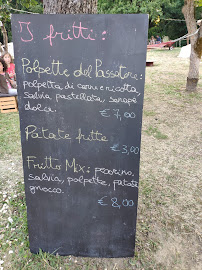 I fritti:
Polpette del Passatore:
polpetta di carne e ricotta
salvia pastellata, senape
dolce.
€ 7,00
Patate fritte
€ 3,00
Fritto Mix: pecorino,
salvia, polpette, patate
gnocco.
€ 8,00